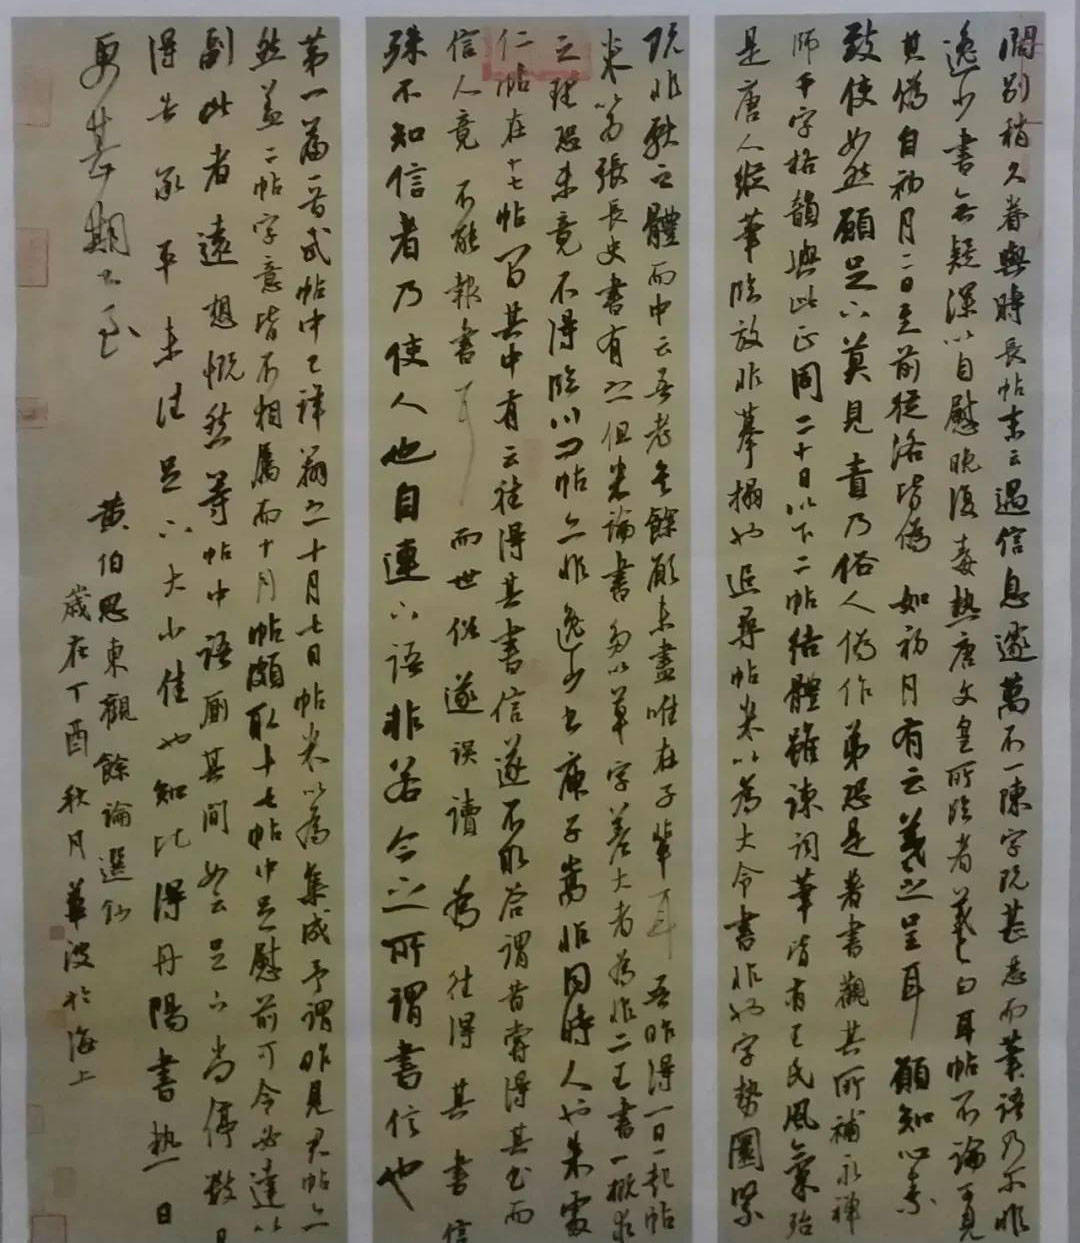 闊別稍久眷與時長帖末云遇信忽遽萬不一陳字既甚惡而筆語乃爾非
逸少書無疑深以自慰晚復毒熱唐文皇所臨者羲之白耳帖不論可見
其偽自初月二日至前從洛皆偽如初月有云羲之呈耳願知心素
致使如然願足下莫見責乃俗人偽作第恐是著書觀其所補永禪
師千字格韻與此正同二十日以下二帖結體雖疎詞筆皆有王氏風氣殆
是唐人縱筆臨放非摹搨也追尋帖米以為大令書非也字勢圓緊
既非獻之體而中云吾老無餘願未盡唯在子輩耳吾昨得一日一起帖
米以為張長史書有之但米論書多以草字差大者為非二王書一概求
之理恐未竟不得臨川帖亦非逸少書庾子嵩非同時人也朱處
仁帖在十七帖間其中有云往得其書信遂不取答謂昔嘗得其書而
信人竟不能報書耳而世俗遂誤讀為往得其書信
殊不知信者乃使人也自連下語非若今之所謂書信也
第一篇晉武帖中已詳獨之十月七日帖米以為集成予謂昨見君帖亦
然蓋二帖字意皆不相屬而十月帖頗取十七帖中足慰前可令必達以
副此者遠想慨然等帖中語廁其間如云足下尚停數日
得告承平未佳足下大小佳也知比得丹陽書熱一日
更甚期已至
黃伯思東觀餘論選抄
歲在丁酉秋月華波於海上